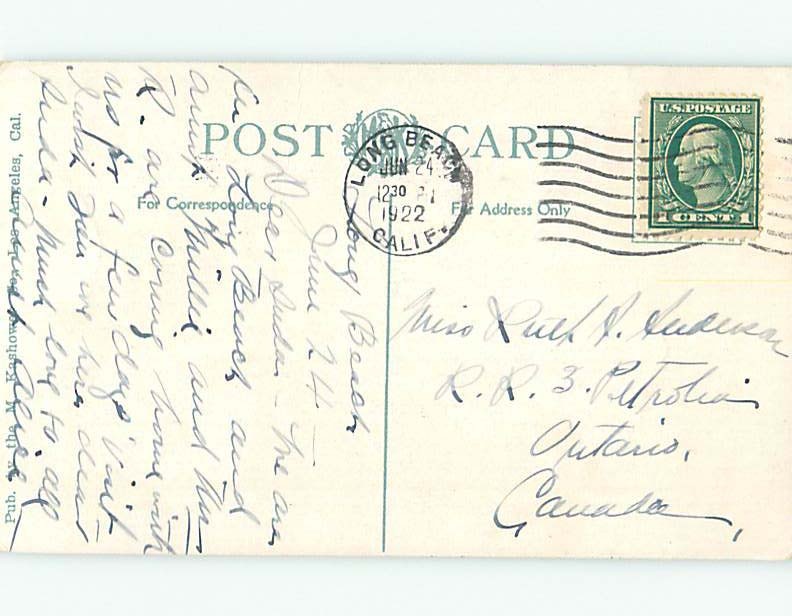 POST CARD
For Correspondence
For Address Only
LONG BEACH
JUN 24
12 30 P
1922
CALIF.
U.S. POSTAGE
1 CENT 1
Miss Ruth H. Anderson
R. R. 3. Petrolia
Ontario,
Canada,
Long Beach
June 24 –
Dear – We are
in Long Beach and
aunt Millie and
R. are coming home with
us for a few days' visit
I wish you were here dear
Much love to all
Pub. by the M. Kashower Co., Los Angeles, Cal.